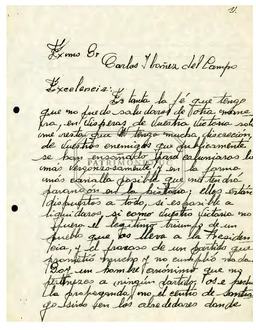 1)
Exmo Sr
Carlos Ibáñez del Campo
Excelencia:
Es tanta la fé que tengo
que no puedo saludarle de otra manera
pra, en vísperas de vuestra victoria solo
me resta que tengo mucha discreción
de vuestros enemigos que públicamente
se han ensañado para calumniarlo lo
más vergonzosamente y en la forma
más canalla posible que no tendrá
parangón en la historia; ellos están
dispuestos a todo, si es posible a
liquidarlos, si como vuestra victoria no
fuera el legítimo triunfo de un
pueblo que os lleva a la Presiden
cia, y el fracaso de un partido que
prometió mucho y no cumplió na da
Soy un hombre anónimo que no
pertenezco a ningún partido,
la propaganda, en el centro de
los alrededores donde
PATRIMONIO